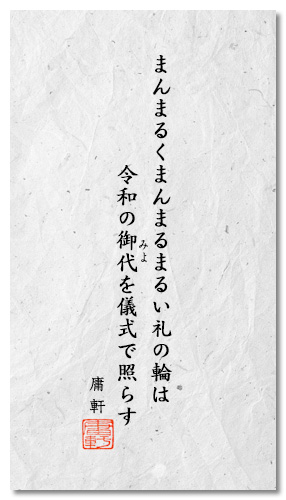 まんまるくまんまるまるい礼の輪は
令和の御代を儀式で照らす
みよ
庸軒
庸軒